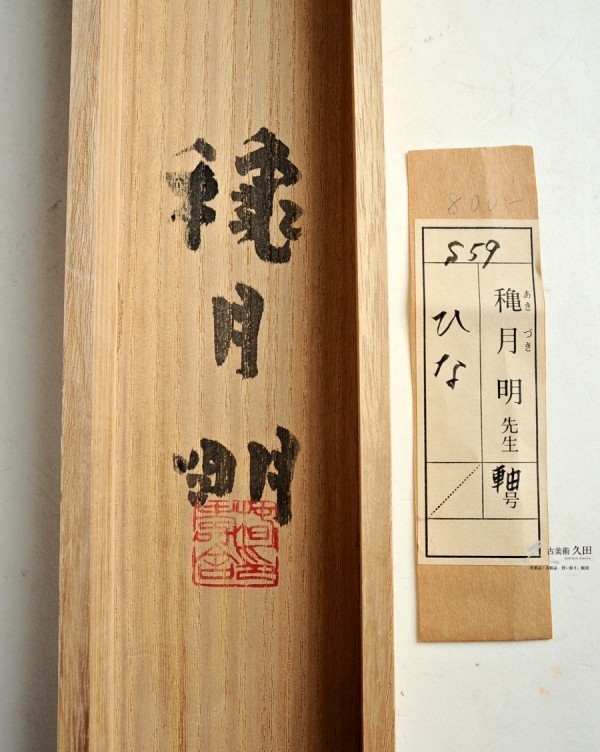 穐月
明
800-
S59
穐月明先生
あきづき
軸号
ひな
古美術 久田